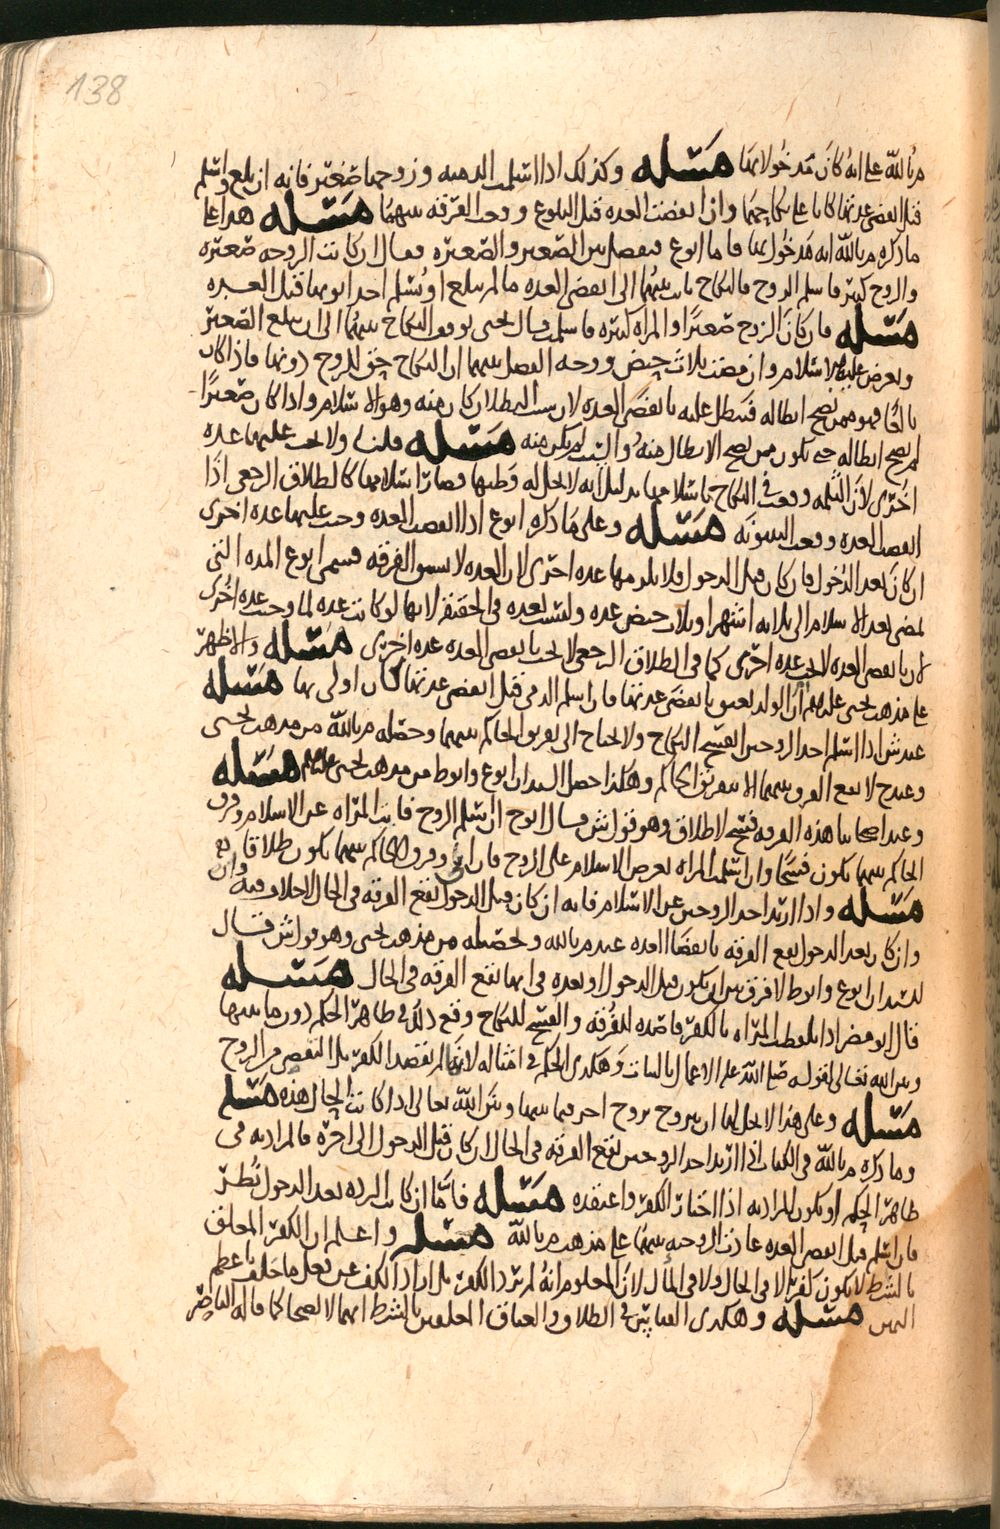 138
م بالله على انه كان مدخولا بها مسئله وكذلك اذا اسلمت الذميه وزوجها صغير فانه ان بلغ واسلم
قبل انقضى عدتها كانا على نكاحهما وان انقضت العده قبل البلوغ وقعت الفرقه بينهما مسئله هذا على
ما ذكره م بالله انه مدخول بها فاما ابو ع ففصل بين الصغير والصغيره فقال ان كانت الزوجه صغيره
والزوج كبير فاسلم الزوج فالنكاح ثابت بينهما الى انقضى العده ما لم تبلغ او يسلم احد ابويها قبل العده
مسئله فان كان الزوج صغيرا والمراه كبيره فاسلمت قال يحيى توقف النكاح بينهما الى ان يبلغ الصغير
ويعرض عليه الاسلام وان مضت ثلاث حيض ووجه الفصل بينهما ان النكاح حق للزوج دونها فاذا كان
بالغا فهو ممن يصح ابطاله فبطل عليه بانقضى العده لان سبب البطلان كان منه وهو الاسلام واذا كان صغيرا
لم يصح ابطاله حتى يكون ممن يصح الابطال منه والسبب لم يكن منه مسئله قلنا ولا تجب عليها عده
اخرى لان الثلمه وقعت في النكاح باسلامها بدليل انه لا يحل له وطيها فصار اسلامها كالطلاق الرجعي اذا
انقضت العده وقعت البينونه مسئله وعلى ما ذكره ابو ع اذا انقضت العده وجب عليها عده اخرى
ان كان بعد الدخول فان كان قبل الدخول فلا يلزمها عده اخرى لان العده لا تسبق الفرقه فسمى ابو ع المده التي
تمضي بعد الاسلام الى ثلاثه اشهر او ثلاث حيض عده وليست بعده في الحقيقه لانها لو كانت عده لما وجبت عده اخرى
لان بانقضى العده لا تجب عده اخرى كما في الطلاق الرجعي لا تجب بانقضى العده عده اخرى مسئله والاظهر
على مذهب يحيى عليلم ان الولد يلحق بانقضى عدتها فان اسلم الذمي قبل انقضى عدتها كان اولى بها مسئله
عند ش اذا اسلم احد الزوجين انفسخ النكاح ولا يحتاج الى تفريق الحاكم بينهما وحصله م بالله من مذهب يحيى
وعند ح لا تقع الفرقه بينهما الا بتفريق الحاكم وهكذا حصل السيدان ابو ع وابو ط من مذهب يحيى عليلم مسئله
وعند اصحابنا هذه الفرقه فسخ لا طلاق وهو قول ش قال ابو ح ان اسلم الزوج فابت المراه عن الاسلام وفرق
الحاكم بينهما يكون فسخا وان اسلمت المراه يعرض الاسلام على الزوج فان ابى وفرق الحاكم بينهما يكون طلاقا
مسئله واذا ارتد احد الزوجين عن الاسلام فانه ان كان قبل الدخول تقع الفرقه في الحال لا خلاف فيه وان
وان كان بعد الدخول تقع الفرقه بانقضا العده عند م بالله وتحصيله من مذهب يحيى وهو قول ش قال
السيدان ابو ع وابو ط لا فرق بين ان يكون قبل الدخول او بعده في انها تقع الفرقه في الحال مسئله
قال ابو مضر اذا تلفظت المراه بالكفر قاصده للفرقه والفسخ للنكاح وقع ذلك في ظاهر الحكم دون ما بينها
وبين الله تعالى لقوله صلى الله عليه الاعمال بالنيات وهكذى الحكم في امثاله لانها لم تقصد الكفر بل التخلص من الزوج
مسئله وعلى هذا لا يحل لها ان تتزوج بزوج اخر فيما بينها وبين الله تعالى اذا كانت الحال هذه مسئله
وما ذكره م بالله في الكتاب اذا ارتد احد الزوجين تقع الفرقه في الحال ان كان قبل الدخول الى اخره فالمراد به في
ظاهر الحكم او يكون المراد به اذا اختار الكفر واعتقده مسئله فاما ان كانت الرده بعد الدخول نظر
فان اسلم قبل انقضى العده عادت الزوجيه بينهما على مذهب م بالله مسئله واعلم ان الكفر المعلق
بالشرط لا يكون كفرا لا في الحال ولا في المال لان المعلوم انه لم يرد الكفر بل اراد الكف عن فعل ما حلف باعظم
اليمين مسئله وهكذى القياس في الطلاق والعتاق المعلقين بالشرط انهما لا يصحا كما قاله الناصر